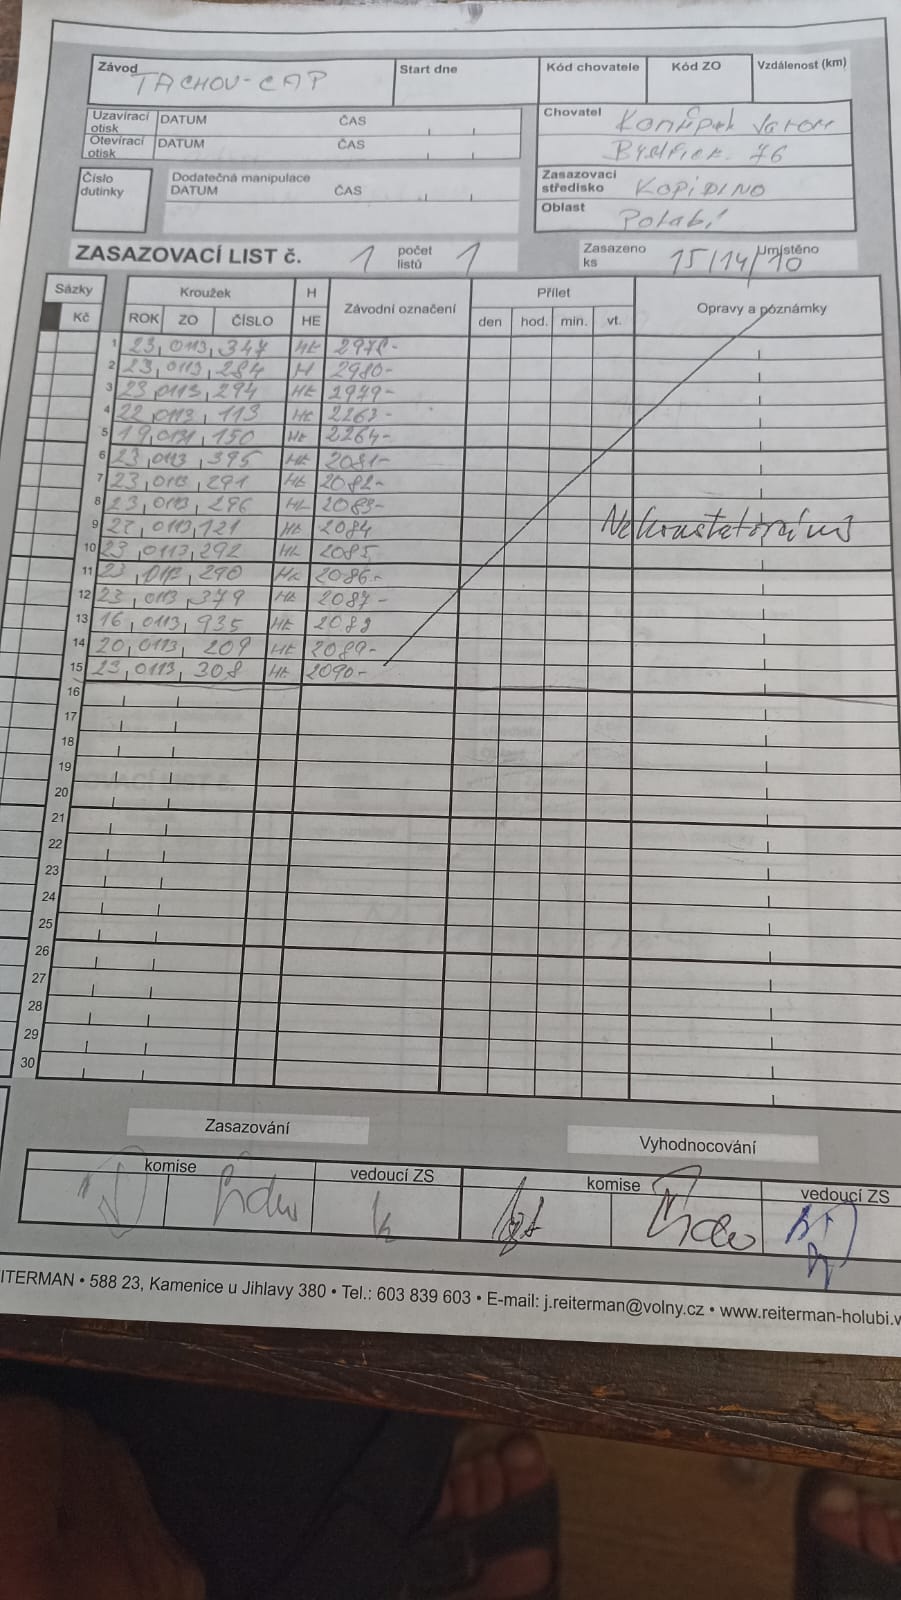 Závod TACHOV-CAP
Start dne
Kód chovatele
Kód ZO
Vzdálenost (km)
Uzavírací otisk DATUM ČAS
Otevírací otisk DATUM ČAS
Chovatel
76
Číslo dutinky
Dodatečná manipulace
DATUM ČAS
Zasazovací středisko KOPIDLNO
Oblast Polabí
ZASAZOVACÍ LIST č. 1 počet listů 1
Zasazeno ks 15/14/10 Umístěno
Sázky Kroužek H Závodní označení Přílet Opravy a póznámky
Kč ROK ZO ČÍSLO HE den hod. min. vt.
1 23,0113,347 HE 2978-
2 23,0113,284 H 2980-
3 23,0113,294 HE 2979-
4 22,0113,113 HE 2263-
5 19, 150 HE 2264-
6 23,0113,395 HE 2081-
7 23,0113,291 HE 2082-
8 23,0113,296 HE 2083-
9 22,0113,121 HE 2084
10 23,0113,292 HE 2085
11 23, 290 HE 2086-
12 23,0113,379 HE 2087-
13 16,0113,935 HE
14 20,0113,209 HE 2089-
15 23,0113,308 HE 2090-
16
17
18
19
20
21
22
23
24
25
26
27
28
29
30
Zasazování
Vyhodnocování
komise vedoucí ZS komise vedoucí ZS
ITERMAN • 588 23, Kamenice u Jihlavy 380 • Tel.: 603 839 603 • E-mail: j.reiterman@volny.cz • www.reiterman-holubi.